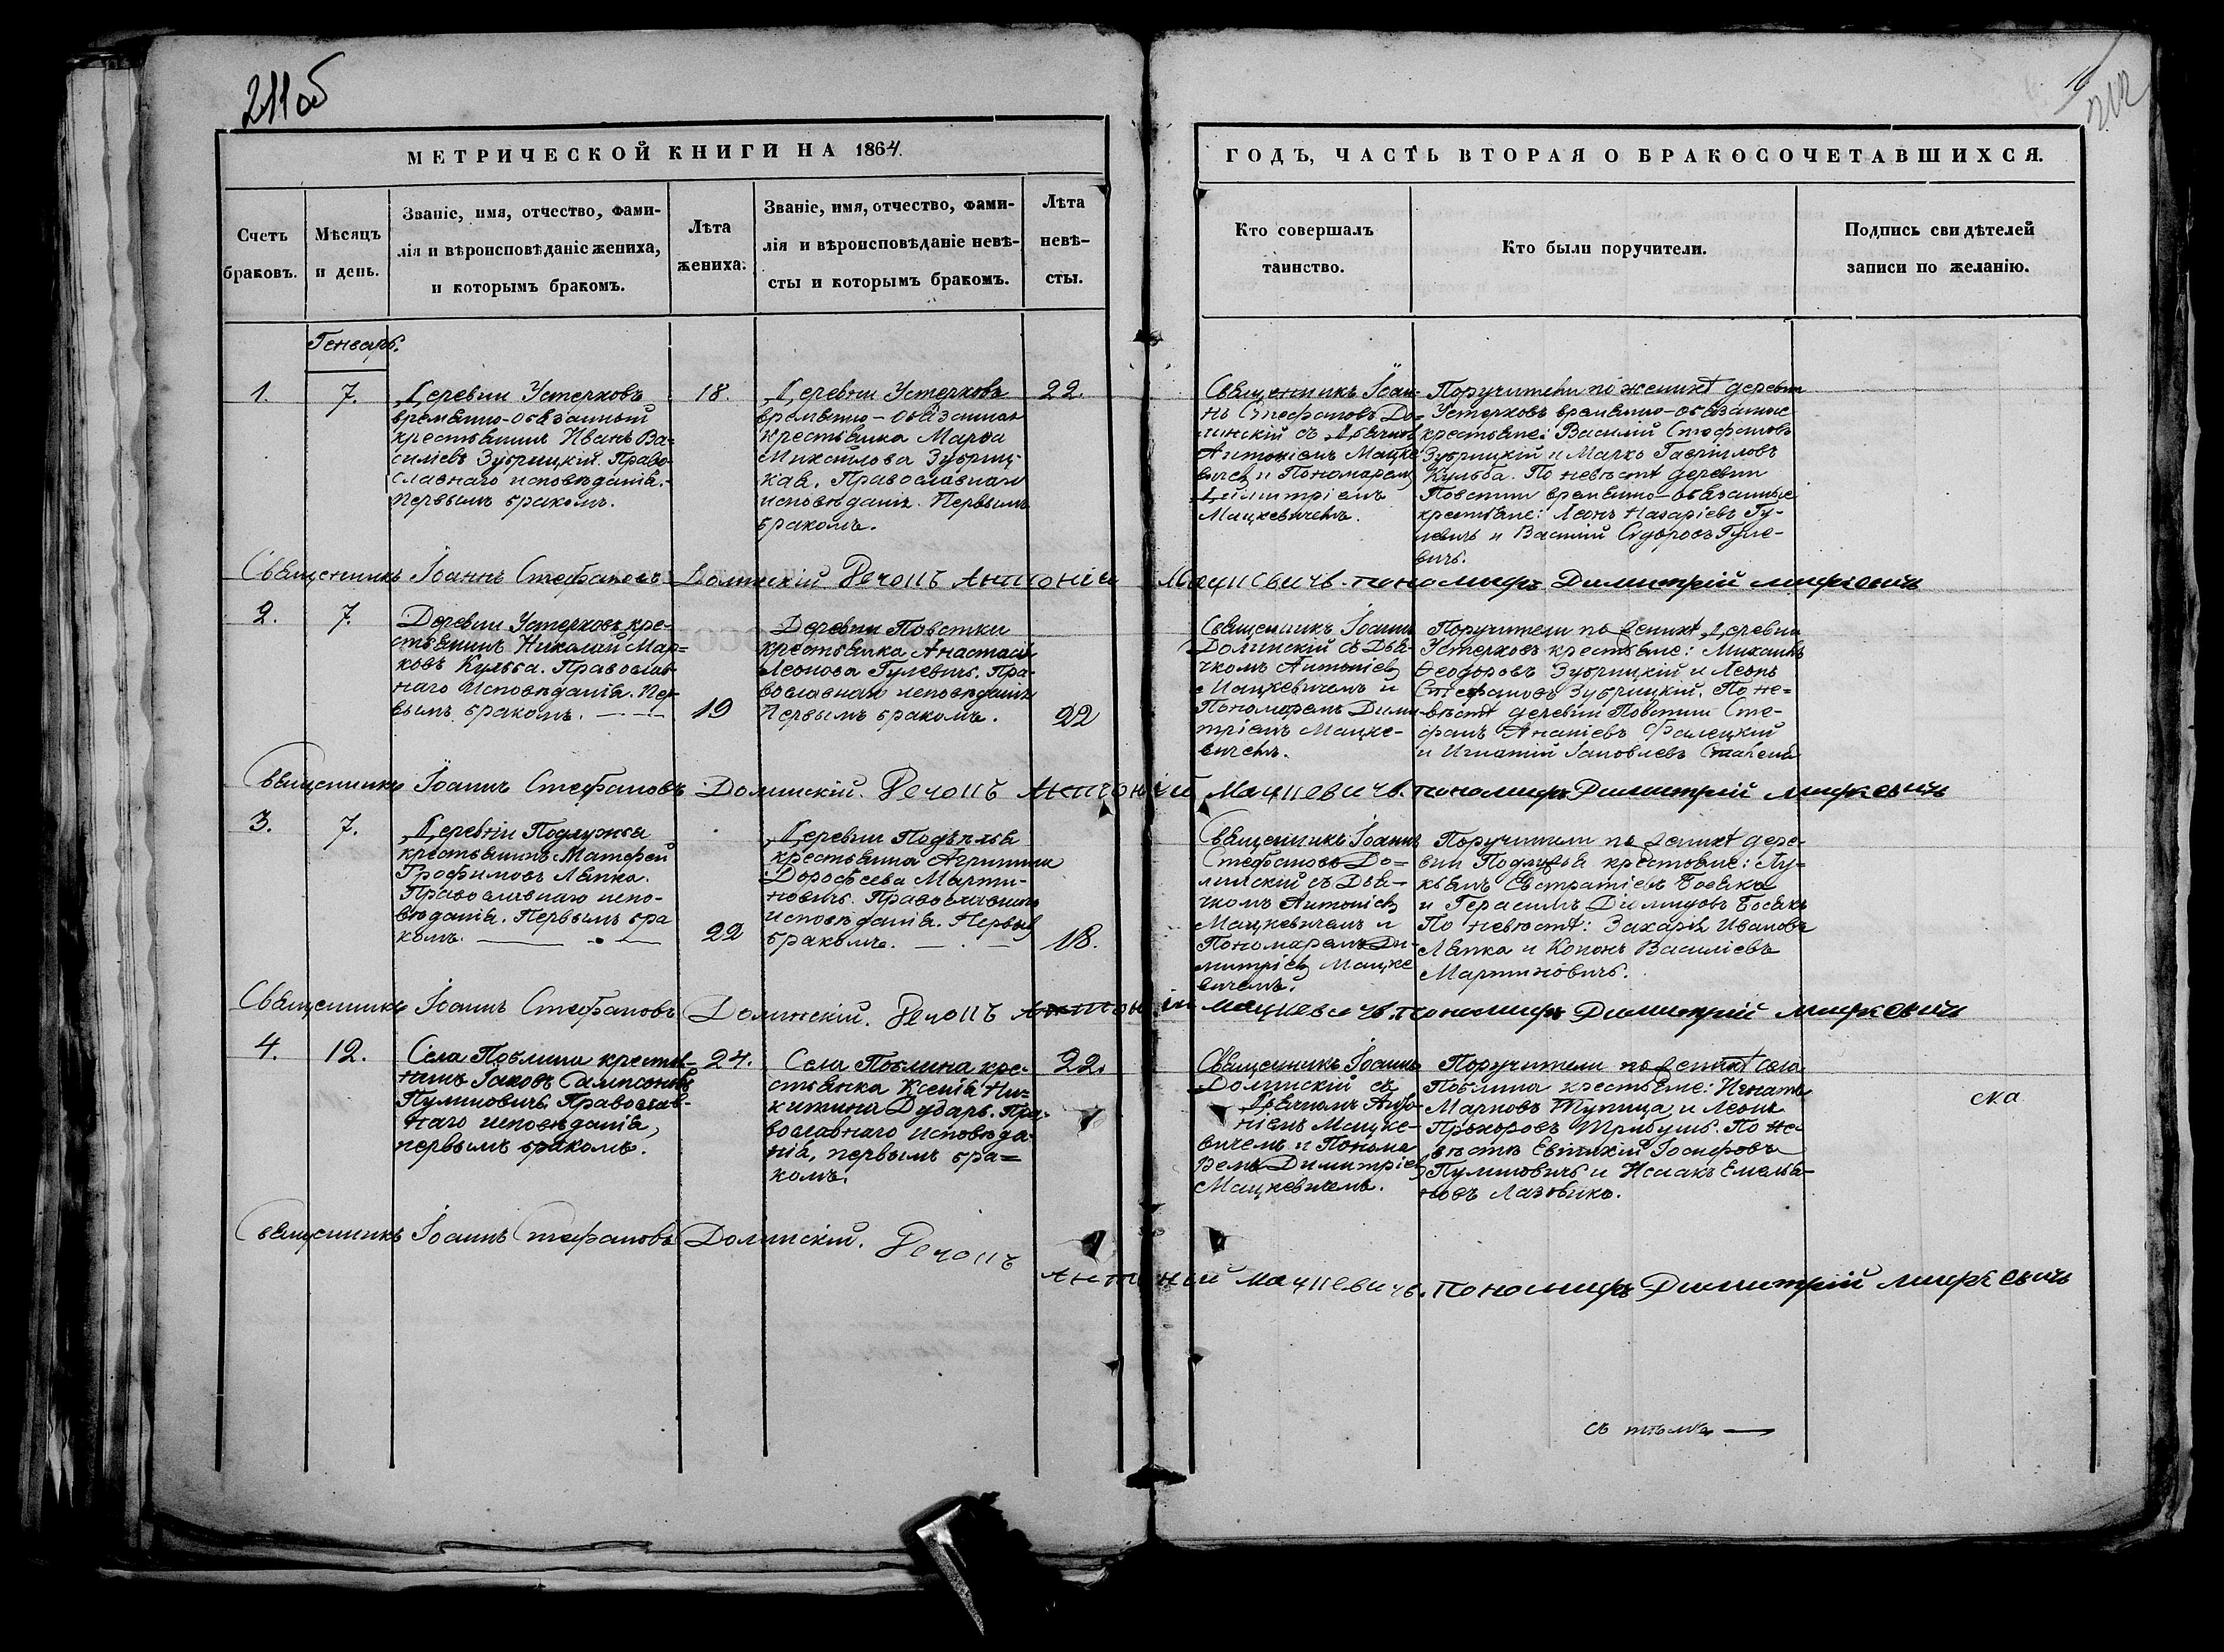 211 об
212
МЕТРИЧЕСКОЙ КНИГИ НА 1864.
ГОДЪ, ЧАСТЬ ВТОРАЯ О БРАКОСОЧЕТАВШИХСЯ.
Счетъ
браковъ.
Мѣсяцъ
и день.
Званіе, имя, отчество, фами-
лія и вѣроисповѣданіе жениха,
и которымъ бракомъ.
Лѣта
жениха.
Званіе, имя, отчество, фами-
лія и вѣроисповѣданіе невѣ-
сты и которымъ бракомъ.
Лѣта
невѣ-
сты.
Кто совершалъ
таинство.
Кто были поручители.
Подпись свидѣтелей
записи по желанію.
Генварь.
1.
7.
Деревни Устерховъ
временно-обязанный
крестьянинъ Иванъ Ва=
силіевъ Зубрицкій. Право-
славнаго исповѣданія.
первымъ бракомъ.
18.
Деревни Устерховъ
временно-обязанная
крестьянка Марѳа
Михайлова Зубриц-
кая. Православнаго
исповѣданія. Первымъ
бракомъ.
22.
Священникъ Іоан-
нъ Стефановъ До-
линскій съ Дьячкомъ
Антоніемъ Мацке
вичемъ и Пономаремъ
Димитріемъ
Мацкевичемъ.
Поручители по женихѣ деревни
Устерховъ временно-обязанные
крестьяне: Василій Стефановъ
Зубрицкій и Марко Гавріиловъ
Кульба. По невѣстѣ деревни
временно-обязанные
крестьяне: Леонъ Назаріевъ Гу-
левичъ и Василій Сидоровъ Гуле-
вичъ.
Священникъ Іоаннъ Стефановъ Долинскій. Дечокъ Антоній Мацкевичъ. пономаръ Димитрій Мацкевичъ
2.
7.
Деревни Устерховъ кре-
стьянинъ Николай Мар=
ковъ Кульба. Православ
наго Исповѣданія. Пер
вымъ бракомъ.
19
Деревни Повстки
крестьянка Анастасія
Леонова Гулевичъ. Пра-
вославнаго исповѣданія
Первымъ бракомъ.
22
Священникъ Іоаннъ
Долинскій съ Дья-
чкомъ Антоніемъ
Мацкевичемъ и
Пономаремъ Дими-
тріемъ Мацке-
вичемъ.
Поручители по женихѣ Деревни
Устерховъ крестьяне: Михаилъ
Ѳеодоровъ Зубрицкій и Леонъ
Стефановъ Зубрицкій. По не=
вѣстѣ деревни Сте-
фанъ Ананіевъ Фалецкій
и Игнатій Іаковлевъ
Священникъ Іоаннъ Стефановъ Долинскій. Дечокъ Антоній Мацкевичъ. пономаръ Димитрій Мацкевичъ
3.
7.
Деревни Подлужья
крестьянинъ Матѳей
Трофимовъ Ляпка.
Православнаго испо-
вѣданія. Первымъ бра
комъ.
22
Деревни
крестьянка Агрипина
Дороѳеева Марти-
новичъ. Православнаго
исповѣданія. Первымъ
бракомъ.
18.
Священникъ Іоаннъ
Стефановъ До=
линскій съ Дья-
чкомъ Антоніемъ
Мацкевичемъ и
Пономаремъ Ди-
митріемъ Мацке
вичемъ.
Поручители по женихѣ дере-
вни Подлужья крестьяне: Лу=
кьянъ Евстратіевъ Босякъ
и Герасимъ Босякъ
По невѣстѣ: Захарій Ивановъ
Ляпка и Кононъ Василіевъ
Мартиновичъ.
Священникъ Іоаннъ Стефановъ Долинскій. Дечокъ Антоній Мацкевичъ. пономаръ Димитрій Мацкевичъ
4.
12.
Села крестья-
нинъ Іаковъ Сампсоновъ
Пулиновичъ. Православ-
наго исповѣданія,
первымъ бракомъ.
24.
Села кре-
стьянка Ксенія Ни-
китина Дударь. Пра-
вославнаго исповѣда-
нія, первымъ бра=
комъ.
22.
Священникъ Іоаннъ
Долинскій съ
Дьячкомъ Анто-
ніемъ Мацке-
вичемъ и Понома
ремъ Димитріемъ
Мацкевичемъ.
Поручители по женихѣ Села
крестьяне: Игнатъ
Марковъ Тупица и Леонъ
Прохоровъ Трибушъ. По не-
вѣстѣ Іосифовъ
Пулиновичъ и Исаакъ Емелья-
новъ Лазовикъ.
ска
Священникъ Іоаннъ Стефановъ Долинскій. Дечокъ
Антоній Мацкевичъ. пономаръ Димитрій Мацкевичъ